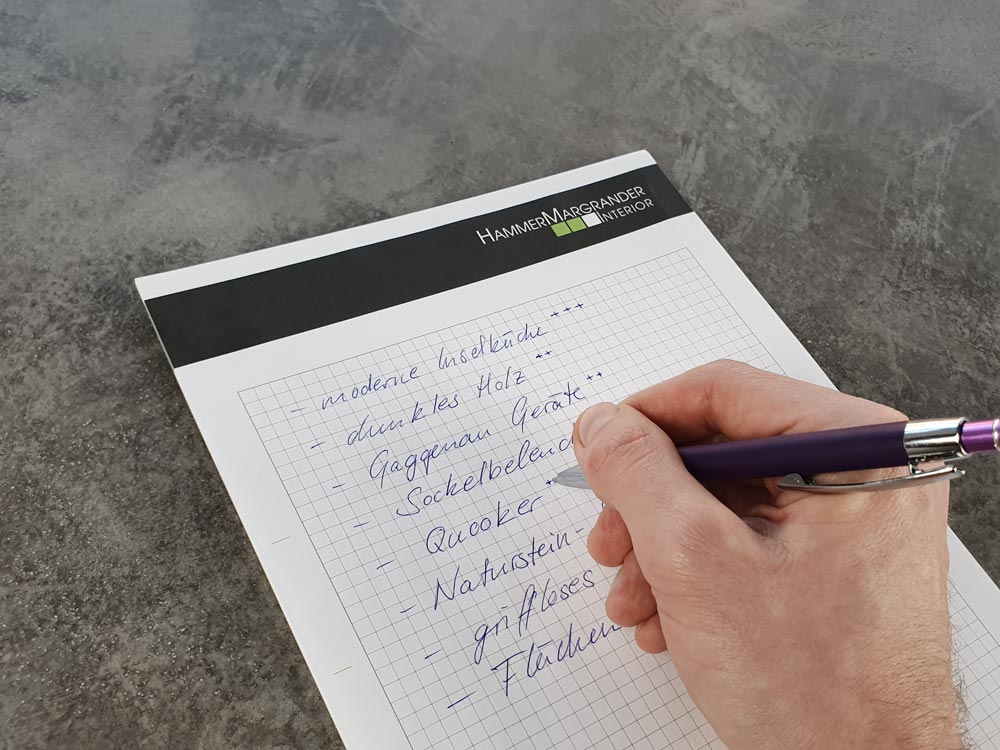 HAMMERMARGRANDER
INTERIOR
- moderne Inselküche +++
- dunkles Holz ++
- Gaggenau Geräte ++
- Sockelbeleuc
- Quooker +
- Naturstein-
- griffloses
- Flächen